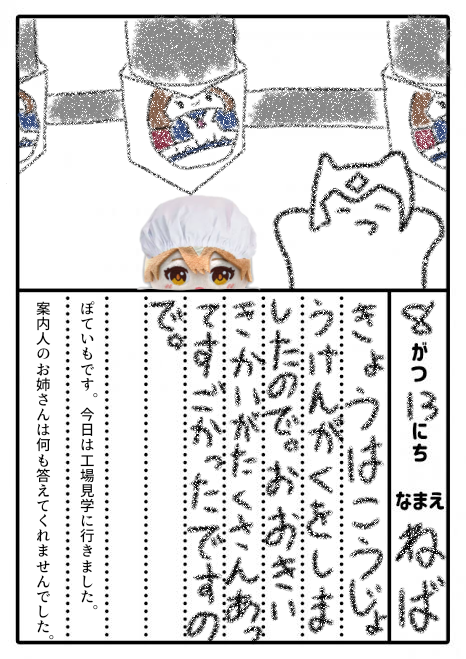 8がつ13にち なまえ ねば
きょうはこうじょ
うけんがくをしま
したので。おおきい
きかいがたくさんあっ
てすごかったですの
で。
ぽていもです。今日は工場見学に行きました。
案内人のお姉さんは何も答えてくれませんでした。